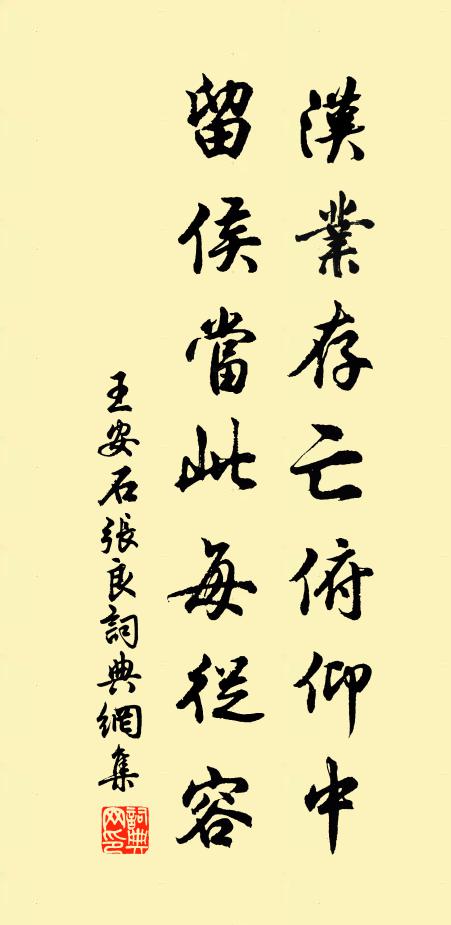 漢業存亡俯仰中
留侯當此每從容
王安石張良詞典網集
詞典網印